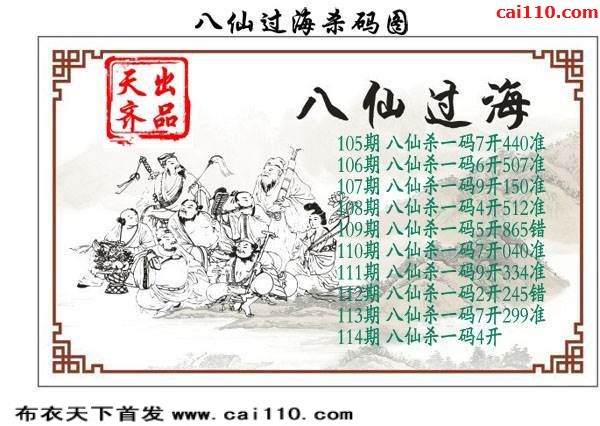 cai110.com
八仙过海杀码图
天齐出品
八仙过海
105期 八仙杀一码7开440准
106期 八仙杀一码6开507准
107期 八仙杀一码9开150准
108期 八仙杀一码4开512准
109期 八仙杀一码5开865错
110期 八仙杀一码7开040准
111期 八仙杀一码9开334准
112期 八仙杀一码2开245错
113期 八仙杀一码7开299准
114期 八仙杀一码4开
布衣天下首发 www.cai110.com